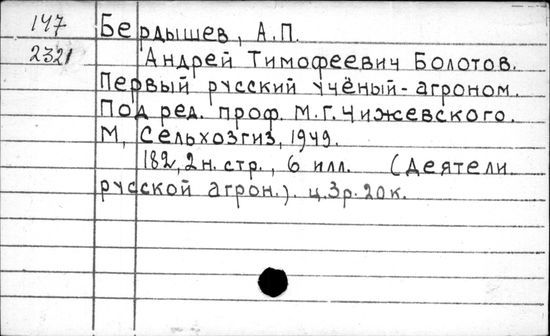 147 Бердышев, А.П.
2321 Андрей Тимофеевич Болотов.
Первый русский учёный-агроном.
Под ред. проф. М.Г. Чижевского.
М, Сельхозгиз, 1949.
182, 2 н. стр., 6 илл. (Деятели
русской агрон.). ц. 3р. 20к.